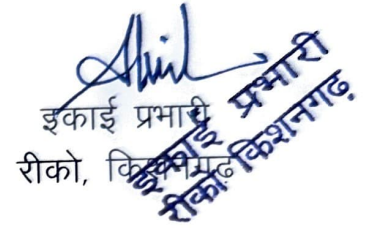 इकाई प्रभारी
रीको, किशनगढ़
इकाई प्रभारी
रीको किशनगढ़